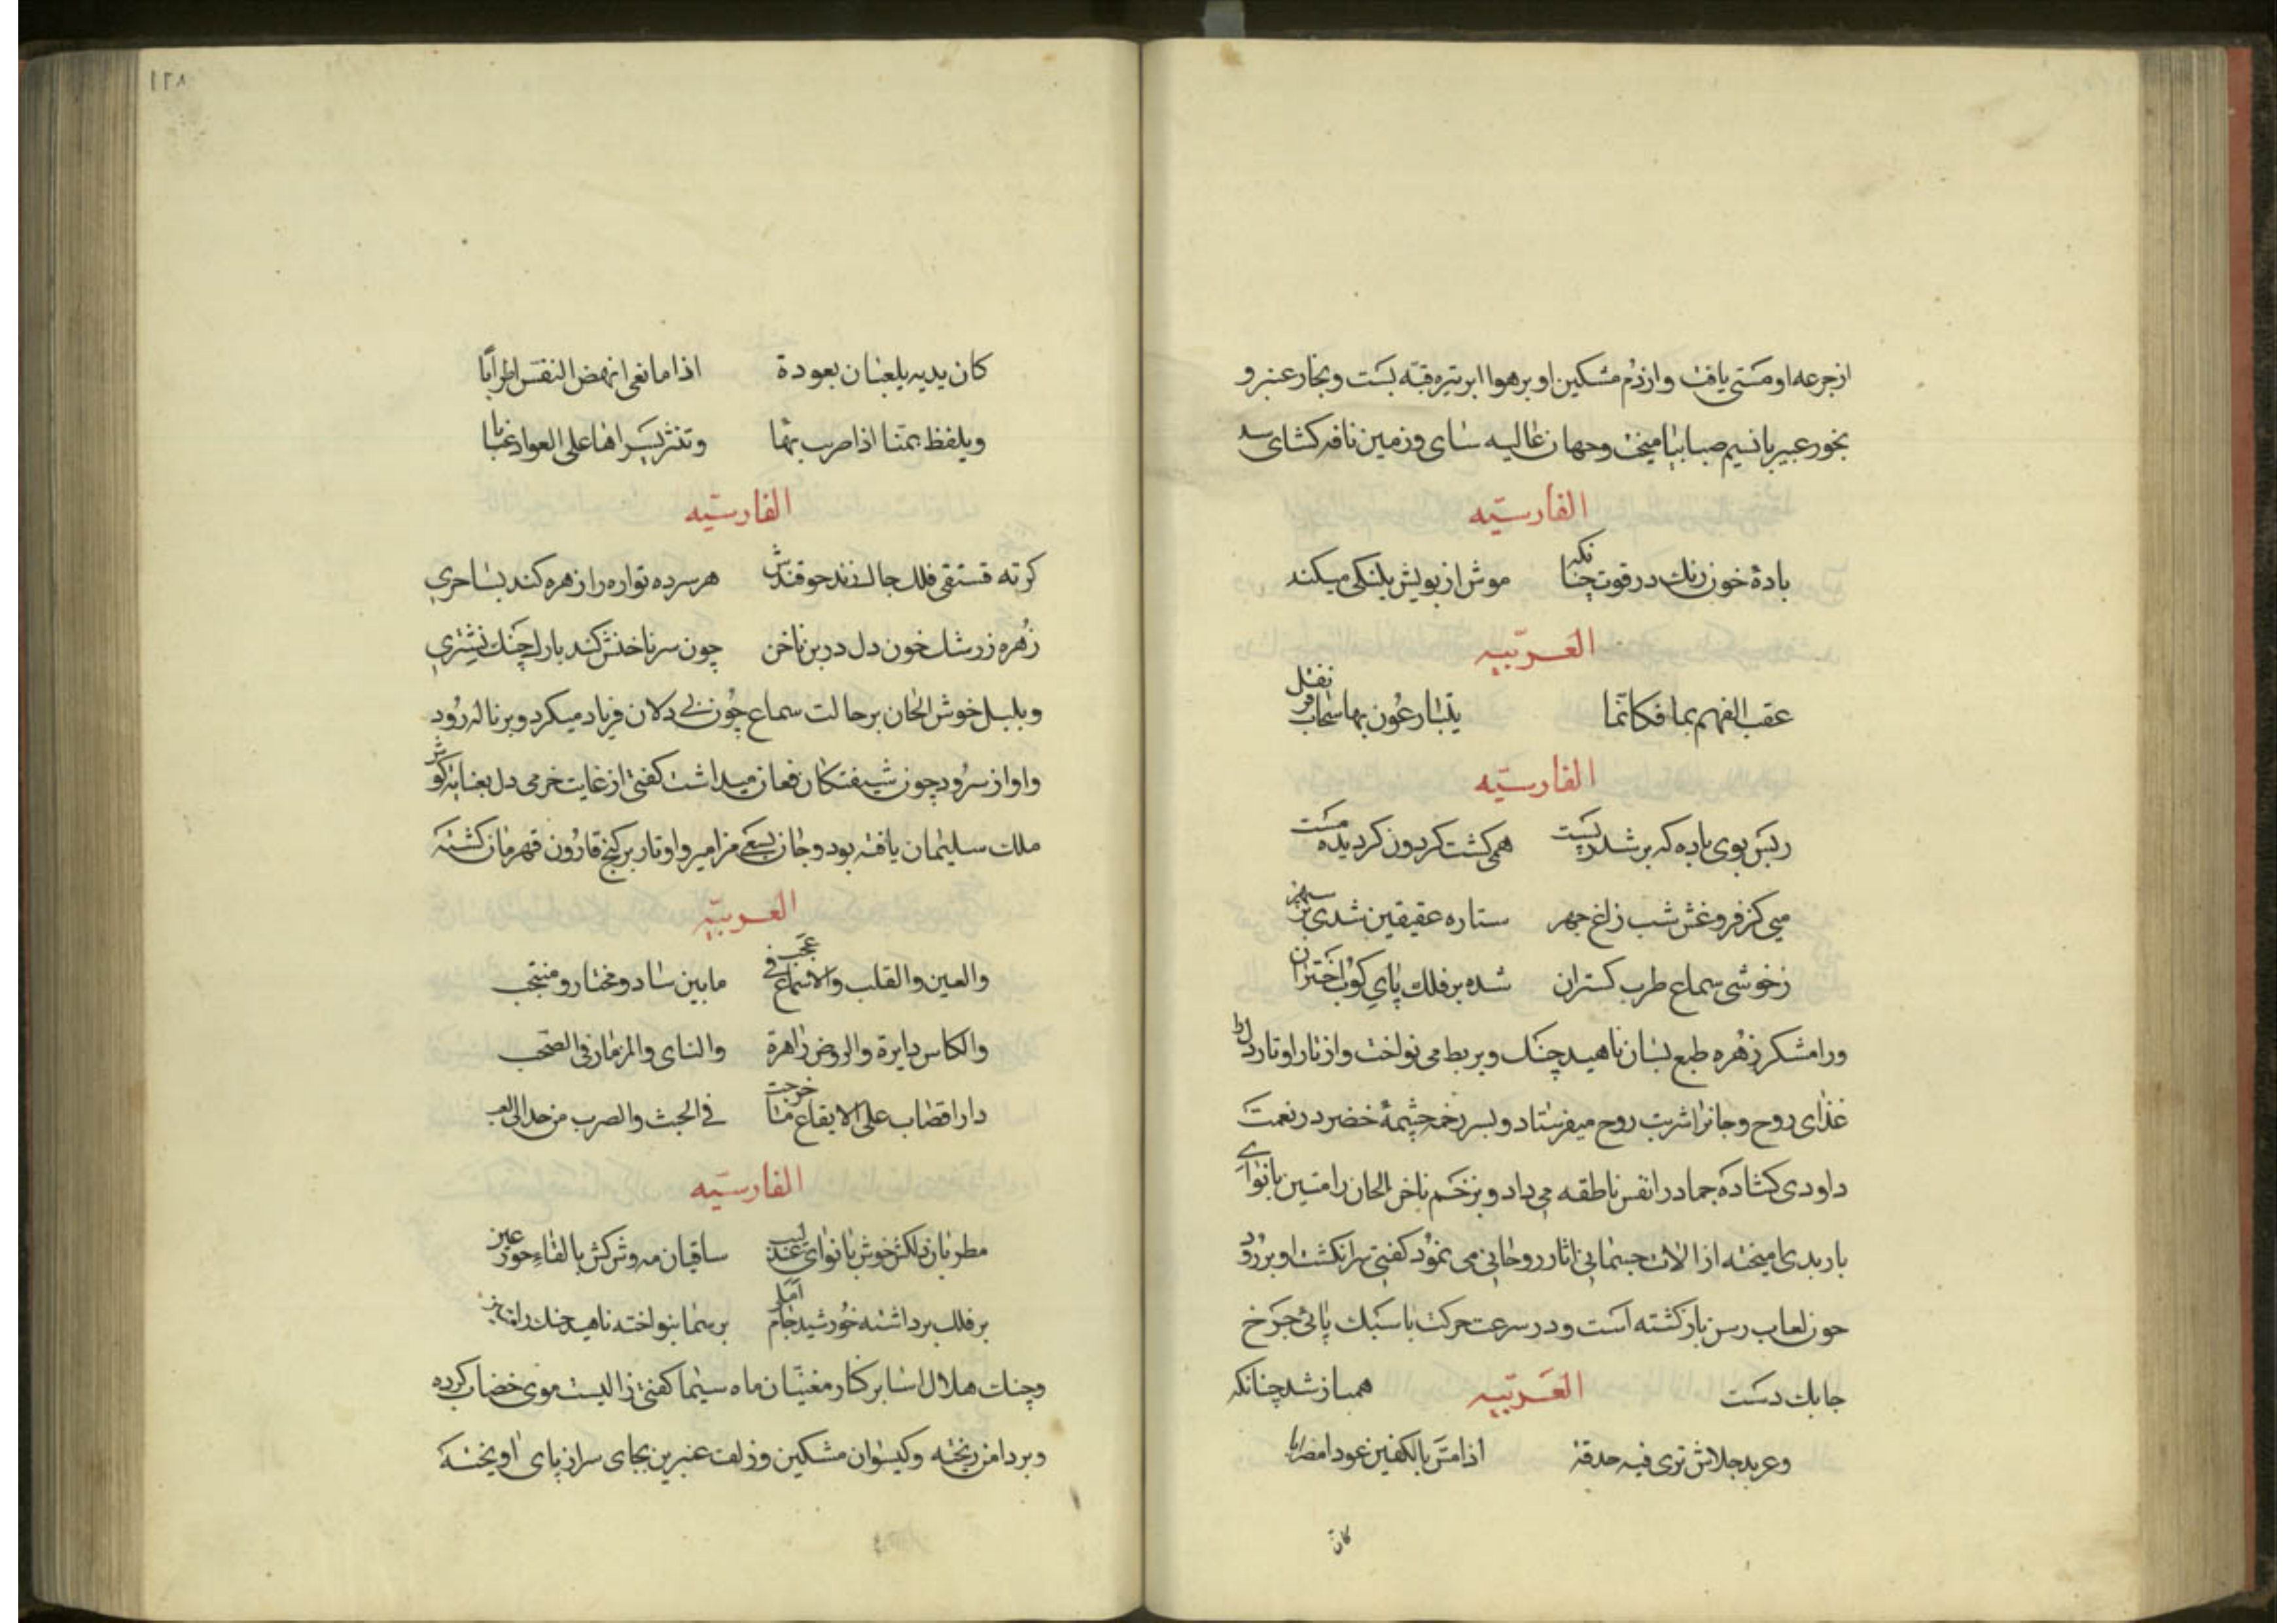 ازجرعه او مستی یافت و از دم مشکین او بر هوا ابر تیره قبه بست و بخار عنبر و
بخور عبیر با نسیم صبا بیامیخت و جهان غالیه سای و زمین نافه کشای
الفارسیه
بادهٔ خون رنك در قوت چنانکه موش از بویش پلنکی میکند
العربیه
عقب الفهم بها فکانما
الفارسیه
زبس بوی باده که بر شد همی کشت کردون کردیده مست
می کز فروغش شب زاغ چهر ستاره عقیقین شدی بر سپهر
زخوشی سماع طرب کستران شده بر فلك پای کوب اختران
و رامشکر زهره طبع بسان ناهید چنك و بربط می نواخت و از تار اوتار دل را
غذای روح و جانرا شربت روح میفرستاد و بسر زخمه چشمهٔ خضر در نعمت
داودی کشاده جماد را نفس ناطقه می داد و بزخم ناخن الحان رامتین با نوای
باربدی امیخته از الات جسمانی اثار روحانی می نمود کفتی سر انکشت او بر رود
چون لعاب رسن باز کشته است و در سرعت حرکت با سبك پائی چرخ
چابك دست العربیه همباز شد چنانکه
تری فیه حدقة اذا مس بالکفین عودا
کان
١٢٨
کان یدیه یلعبان بعودة اذا ما تغنی انهض النفس اطرابا
ویلفظ یمنا اذا ضرب بها وتنثر یسراها علی العود عنابا
الفارسیه
کرته فستقی فلك چاك زند چو فندقش هر سر ده تواره را زهره کند بساحری
زهره ز رشك خون دل در بن ناخن چون سر ناخنش کند با رك چنك نشتری
و بلبل خوش الحان بر حالت سماع چون بی دلان فریاد میکرد و بر ناله رود
و اواز سرود چون شیفتکان فغان میداشت کفتی از غایت خرمی دل
ملك سلیمان یافته بود و جان بسعی مزامیر و اوتار بر کنج قارون قهرمان کشته
العربیه
والعین والقلب والاسماع فی عجب مابین شاد ومختار ومنتجب
والکاس دایرة والروض زاهرة والنای والمزمار فی الصخب
علی الایقاع خرجت والضرب من
الفارسیه
مطربان دلکش خوش با نوای عندلیب ساقیان مه وش کش با لقاء حور عین
بر فلك برداشته خورشید جام بر سما بنواخته ناهید چنك
و چنك هلال اسا بر کنار مغنیان ماه سیما کفتی زالیست موی خضاب کرده
و بر دامن ریخته و کیسوان مشکین و زلف عنبرین بجای سر از پای اویخته